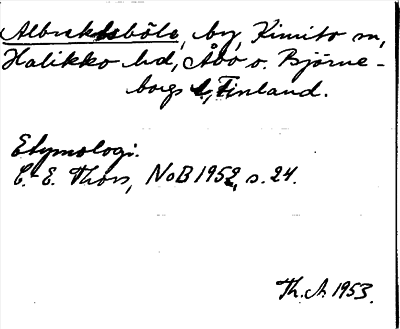 Albrektsböle, by, Kimito sn,
Halikko hd, Åbo o. Björne-
borgs l, Finland.
Etymologi.
C. E. Thors, NoB 1952, s. 24.
Th. A. 1953.